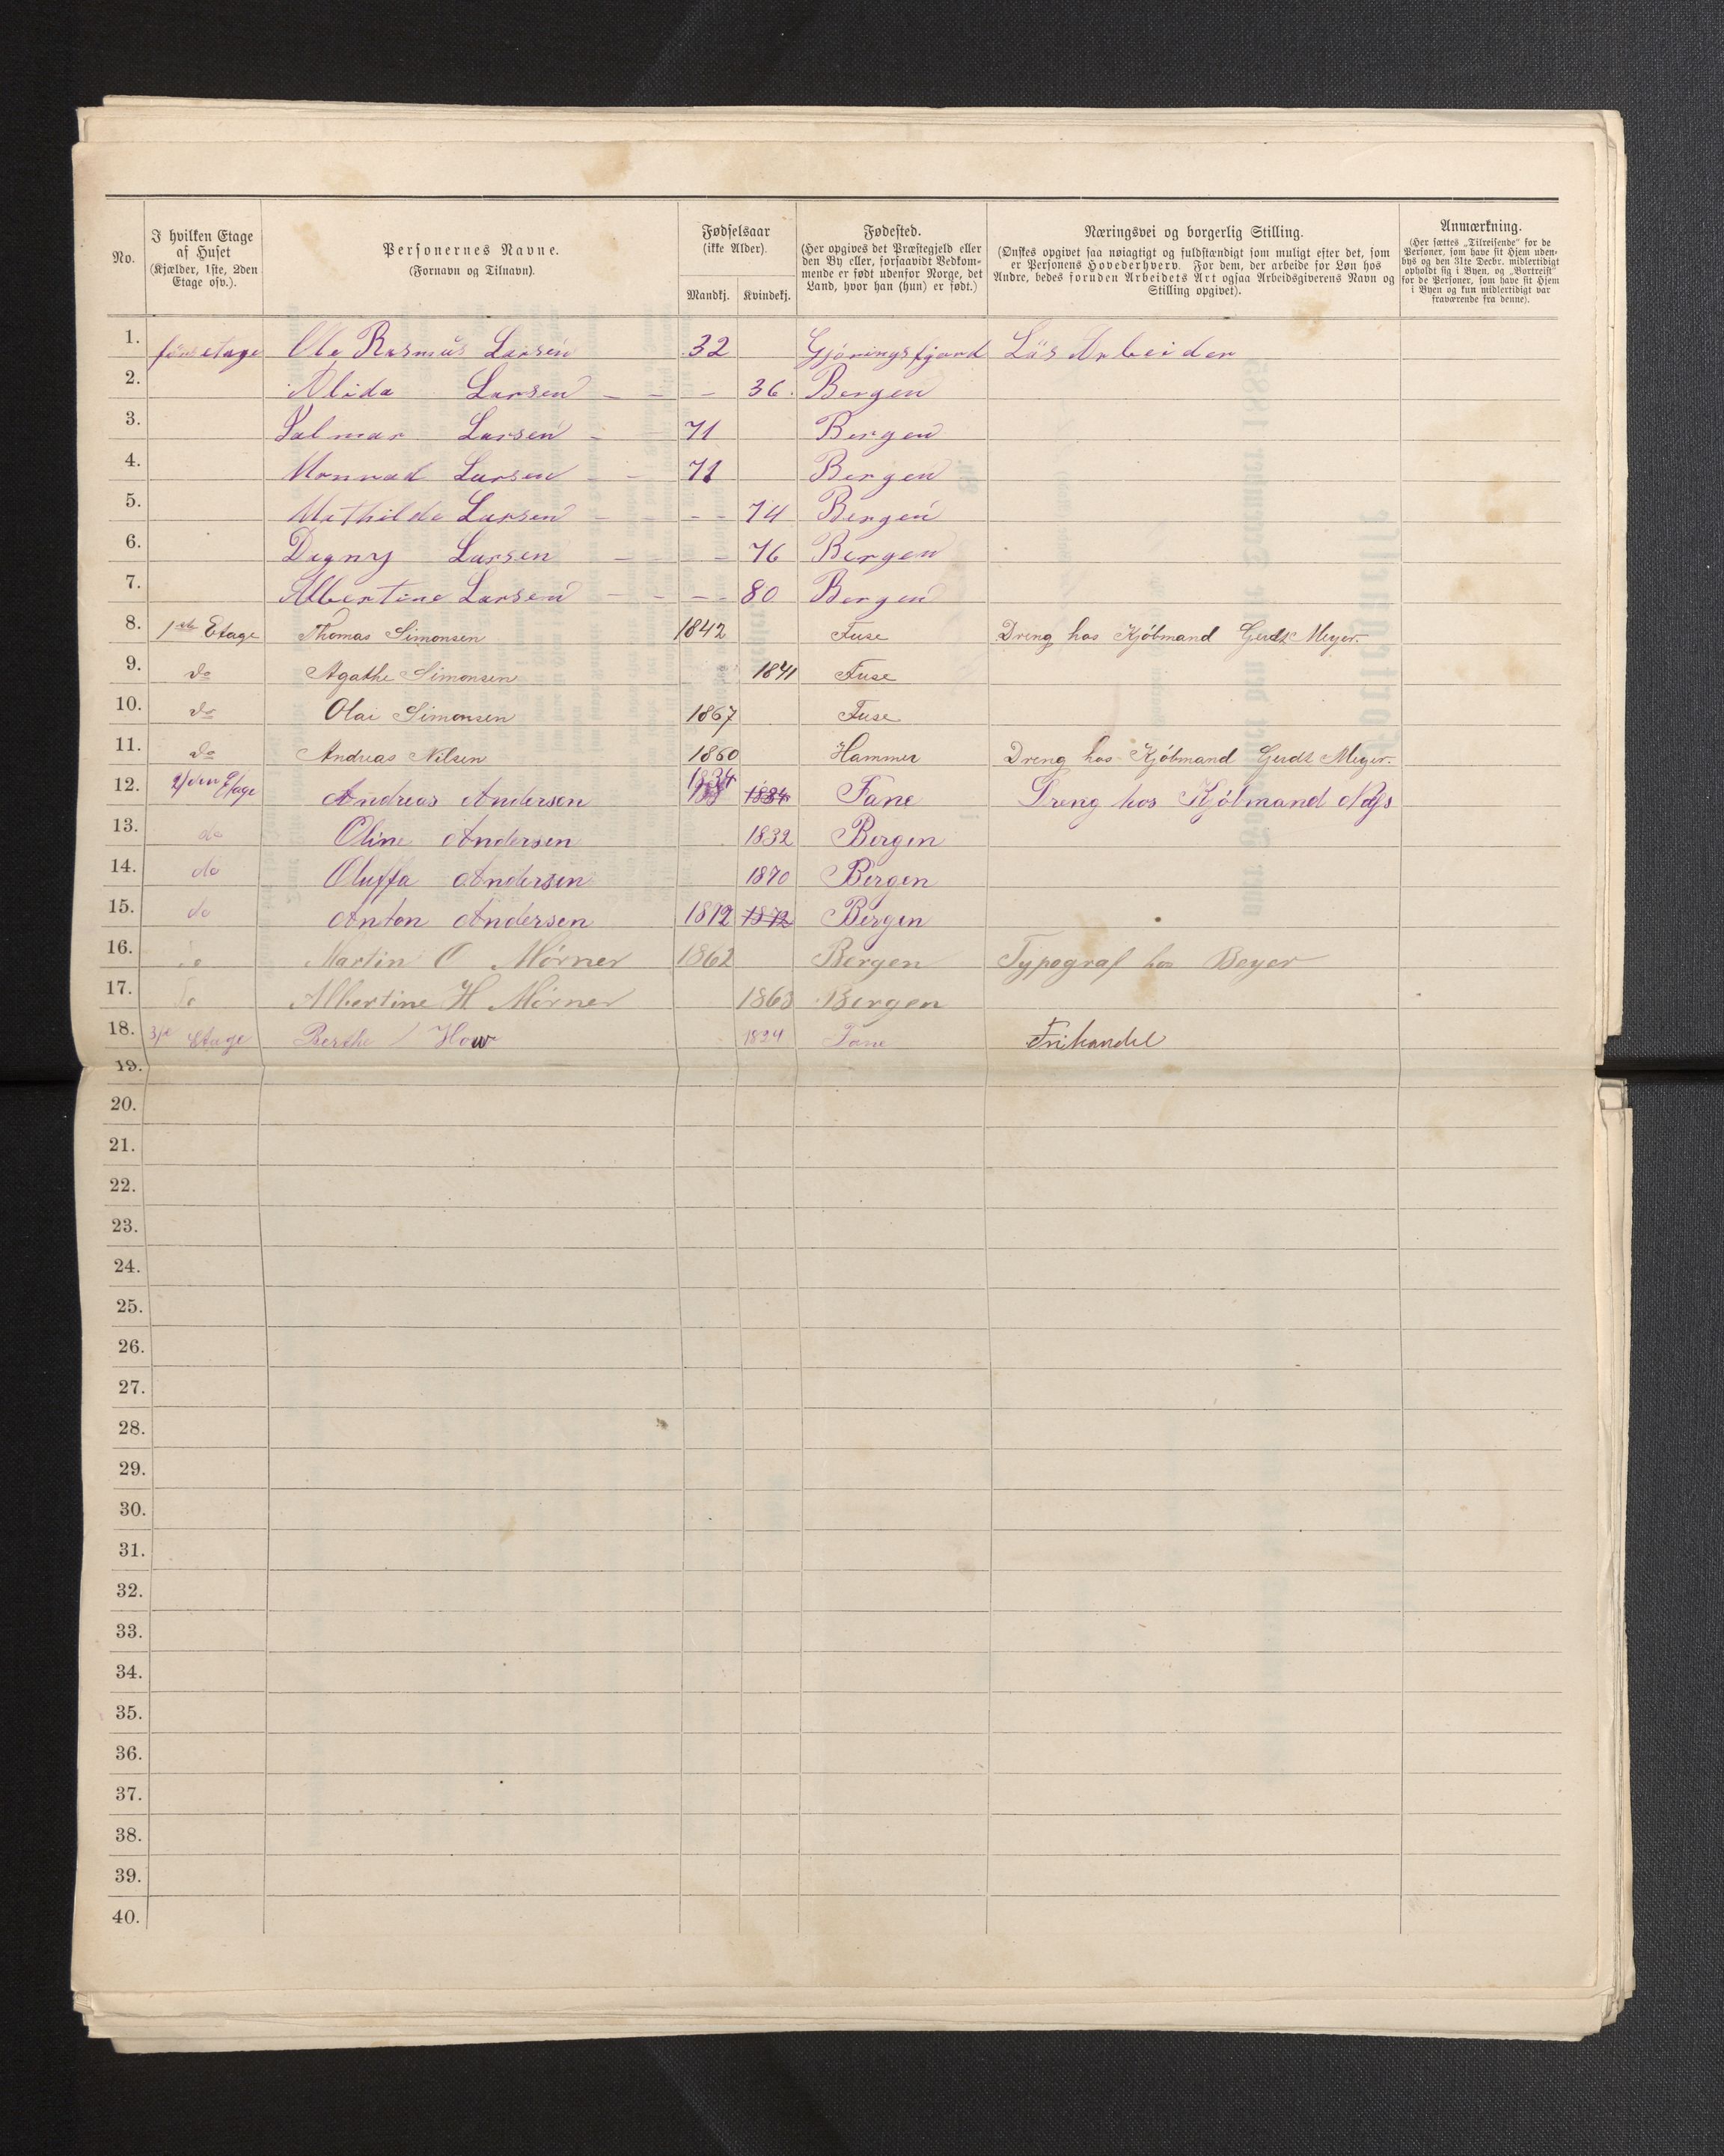 No.
I hvilken Etage af Huset (Kjælder, 1ste, 2den Etage osv.).
Personernes Navne.
(Fornavn og Tilnavn).
Fødselsaar
(ikke Alder).
Mandkj. Kvindekj.
Fødested.
(Her opgives det Præstegjeld eller
den By eller, forsaavidt Vedkom-
mende er født udenfor Norge, det
Land, hvor han (hun) er født.)
Næringsvei og borgerlig Stilling.
(Ønskes opgivet saa nøiagtigt og fuldstændigt som muligt efter det, som
er Personens Hovederhverv. For dem, der arbeide for Løn hos
Andre, bedes foruden Arbeidets Art ogsaa Arbeidsgiverens Navn og
Stilling opgivet).
Anmærkning.
(Her sættes „Tilreisende" for de
Personer, som have sit Hjem uden-
bys og den 31te Decbr. midlertidigt
opholdt sig i Byen, og „Bortreist"
for de Personer, som have sit Hjem
i Byen og kun midlertidigt var
fraværende fra denne).
1. etage Ole Rasmus Larsen 32 Gjöringsfjord Lös Arbeider
2. Alida Larsen - - - 36. Bergen
3. Valmar Larsen - 71 Bergen
4. Monrad Larsen - - 71 Bergen
5. Mathilde Larsen - - - - 74 Bergen
6. Dagny Larsen - - 76 Bergen
7. Albertine Larsen - - - - 80 Bergen
8. 1ste Etage Thomas Simonsen 1842 Fuse Dreng hos Kjöbmand Gerdt Meyer.
9. do Agathe Simonsen 1841 Fuse
10. do Olai Simonsen 1867 Fuse
11. do Andreas Nilsen 1860 Hammer Dreng hos Kjöbmand Gerdt Meyer.
12. 2den Etage Andreas Andersen 1834 1834 Fane Dreng hos Kjöbmand
13. do Oline Andersen 1832 Bergen
14. do Oluffa Andersen 1870 Bergen
15. do Anton Andersen 1872 1872 Bergen
16. do Martin O Mörner 1862 Bergen Typograf hos Beyer
17. do Albertine H Mörner 1863 Bergen
18. 3je Etage Berthe How 1834 Fane Frihandel
19.
20.
21.
22.
23.
24.
25.
26.
27.
28.
29.
30.
31.
32.
33.
34.
35.
36.
37.
38.
39.
40.